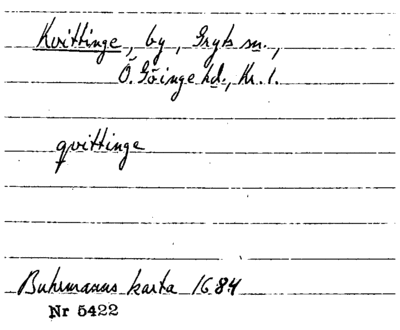 Kvittinge, by, Gryts sn.,
Ö. Göinge hd., Kr. l.
qvittinge
Buhrmanns karta 1684
Nr 5422